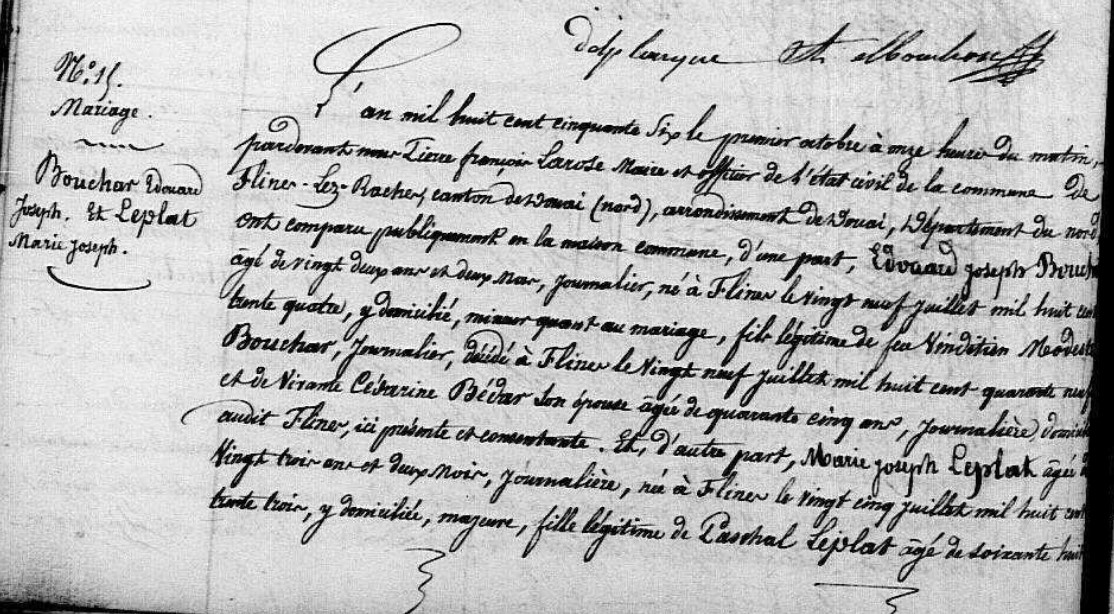 N.° 15.
Mariage.
Bouchar Edouard
Joseph. Et Leplat
Marie Joseph.
L'an mil huit cent cinquante Six le premier octobre à onze heures du matin,
pardevant nous Pierre françois Larose Maire et officier de l'état civil de la commune de
Flines-Lez-Raches, canton de Douai (nord), arrondissement de Douai, Département du nord
ont comparu publiquement en la maison commune, d'une part, Edouard Joseph Bouch
âgé de vingt deux ans et deux mois, journalier, né à Flines le vingt neuf juillet mil huit cent
trente quatre, y domicilié, mineur quant au mariage, fils légitime de feu Vinditien Modeste
Bouchar, Journalier, décédé à Flines le vingt neuf juillet mil huit cent quarante neuf
et de Césarine Bédar son épouse âgée de quarante cinq ans, journalière, domici
audit Flines, ici présente et consentante. Et, d'autre part, Marie Joseph Leplat âgée d
Vingt trois ans et deux mois, journalière, née à Flines le vingt cinq juillet mil huit cent
trente trois, y domiciliée, majeure, fille légitime de Paschal Leplat âgé de soixante huit